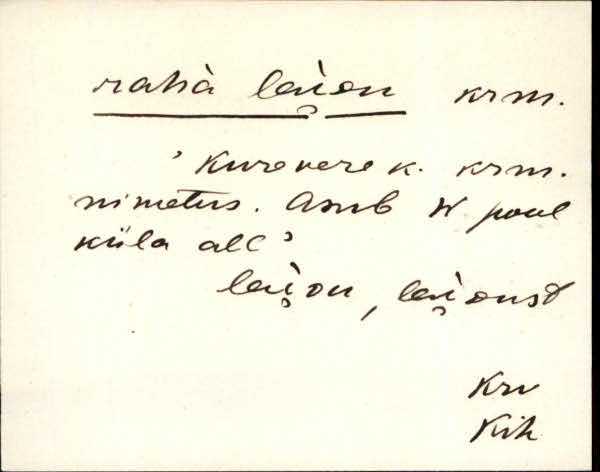 rahà lai̯on krm.
'Kurevere k. krm.
nimetus. Asub W pool
küla all'
lai̯on, lai̯onst
Krv
Kih